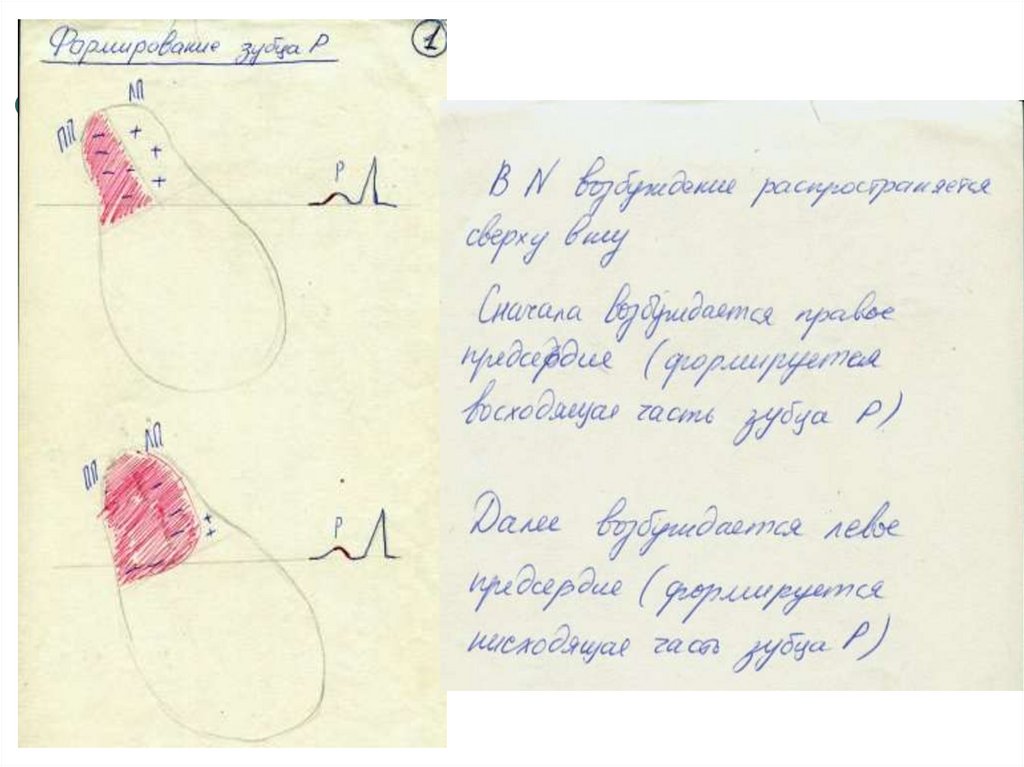 Формирование зубца Р
1
ЛП
ПП
Р
ЛП
ПП
Р
В N возбуждение распространяется
сверху вниз
Сначала возбуждается правое
предсердие (формируется
восходящая часть зубца Р)
Далее возбуждается левое
предсердие (формируется
нисходящая часть зубца Р)